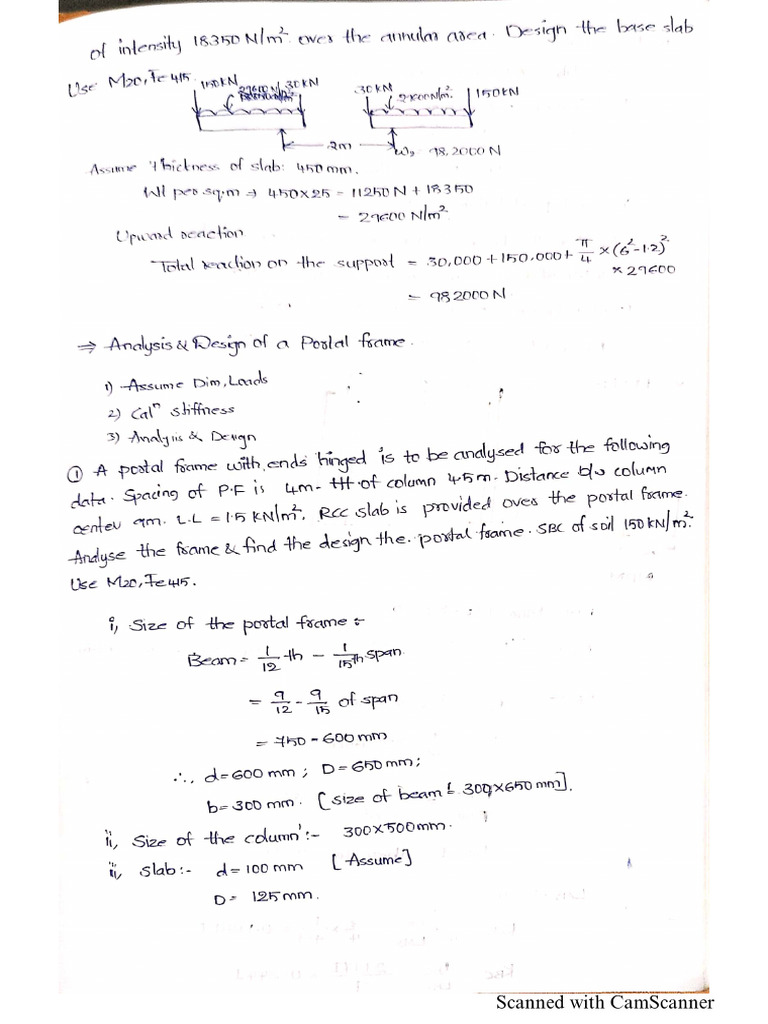 of intensity 18350 N/m² over the annular area. Design the base slab
Use M20, Fe415.
150KN 30KN 30KN 150KN
2m W, 98,2000N
Assume Thickness of slab: 450mm.
Wl per sq.m → 450x25 = 11250N + 18350
= 29600 N/m²
Upward reaction
Total reaction on the support = 30,000 + 150,000 + π/4 × (6²-1.2)²
× 29600
= 982000 N
⇒ Analysis & Design of a Portal frame.
1) Assume Dim, Loads
2) Calⁿ stiffness
3) Analysis & Design
① A portal frame with ends hinged is to be analysed for the following
data. Spacing of P.F is 4m. Ht of column 4.5m. Distance b/w column
center 9m. L.L = 1.5 KN/m². RCC slab is provided over the portal frame.
Analyse the frame & find the design the portal frame. SBC of soil 150 KN/m².
Use M20, Fe415.
i, Size of the portal frame :-
Beam = 1/12 th - 1/15th span
= 9/12 - 9/15 of span
= 750 - 600mm
∴, d=600mm; D=650mm;
b=300mm. [Size of beam = 300x650mm].
ii, Size of the column :- 300x500mm.
ii, slab:- d=100mm [Assume]
D= 125mm.
Scanned with CamScanner